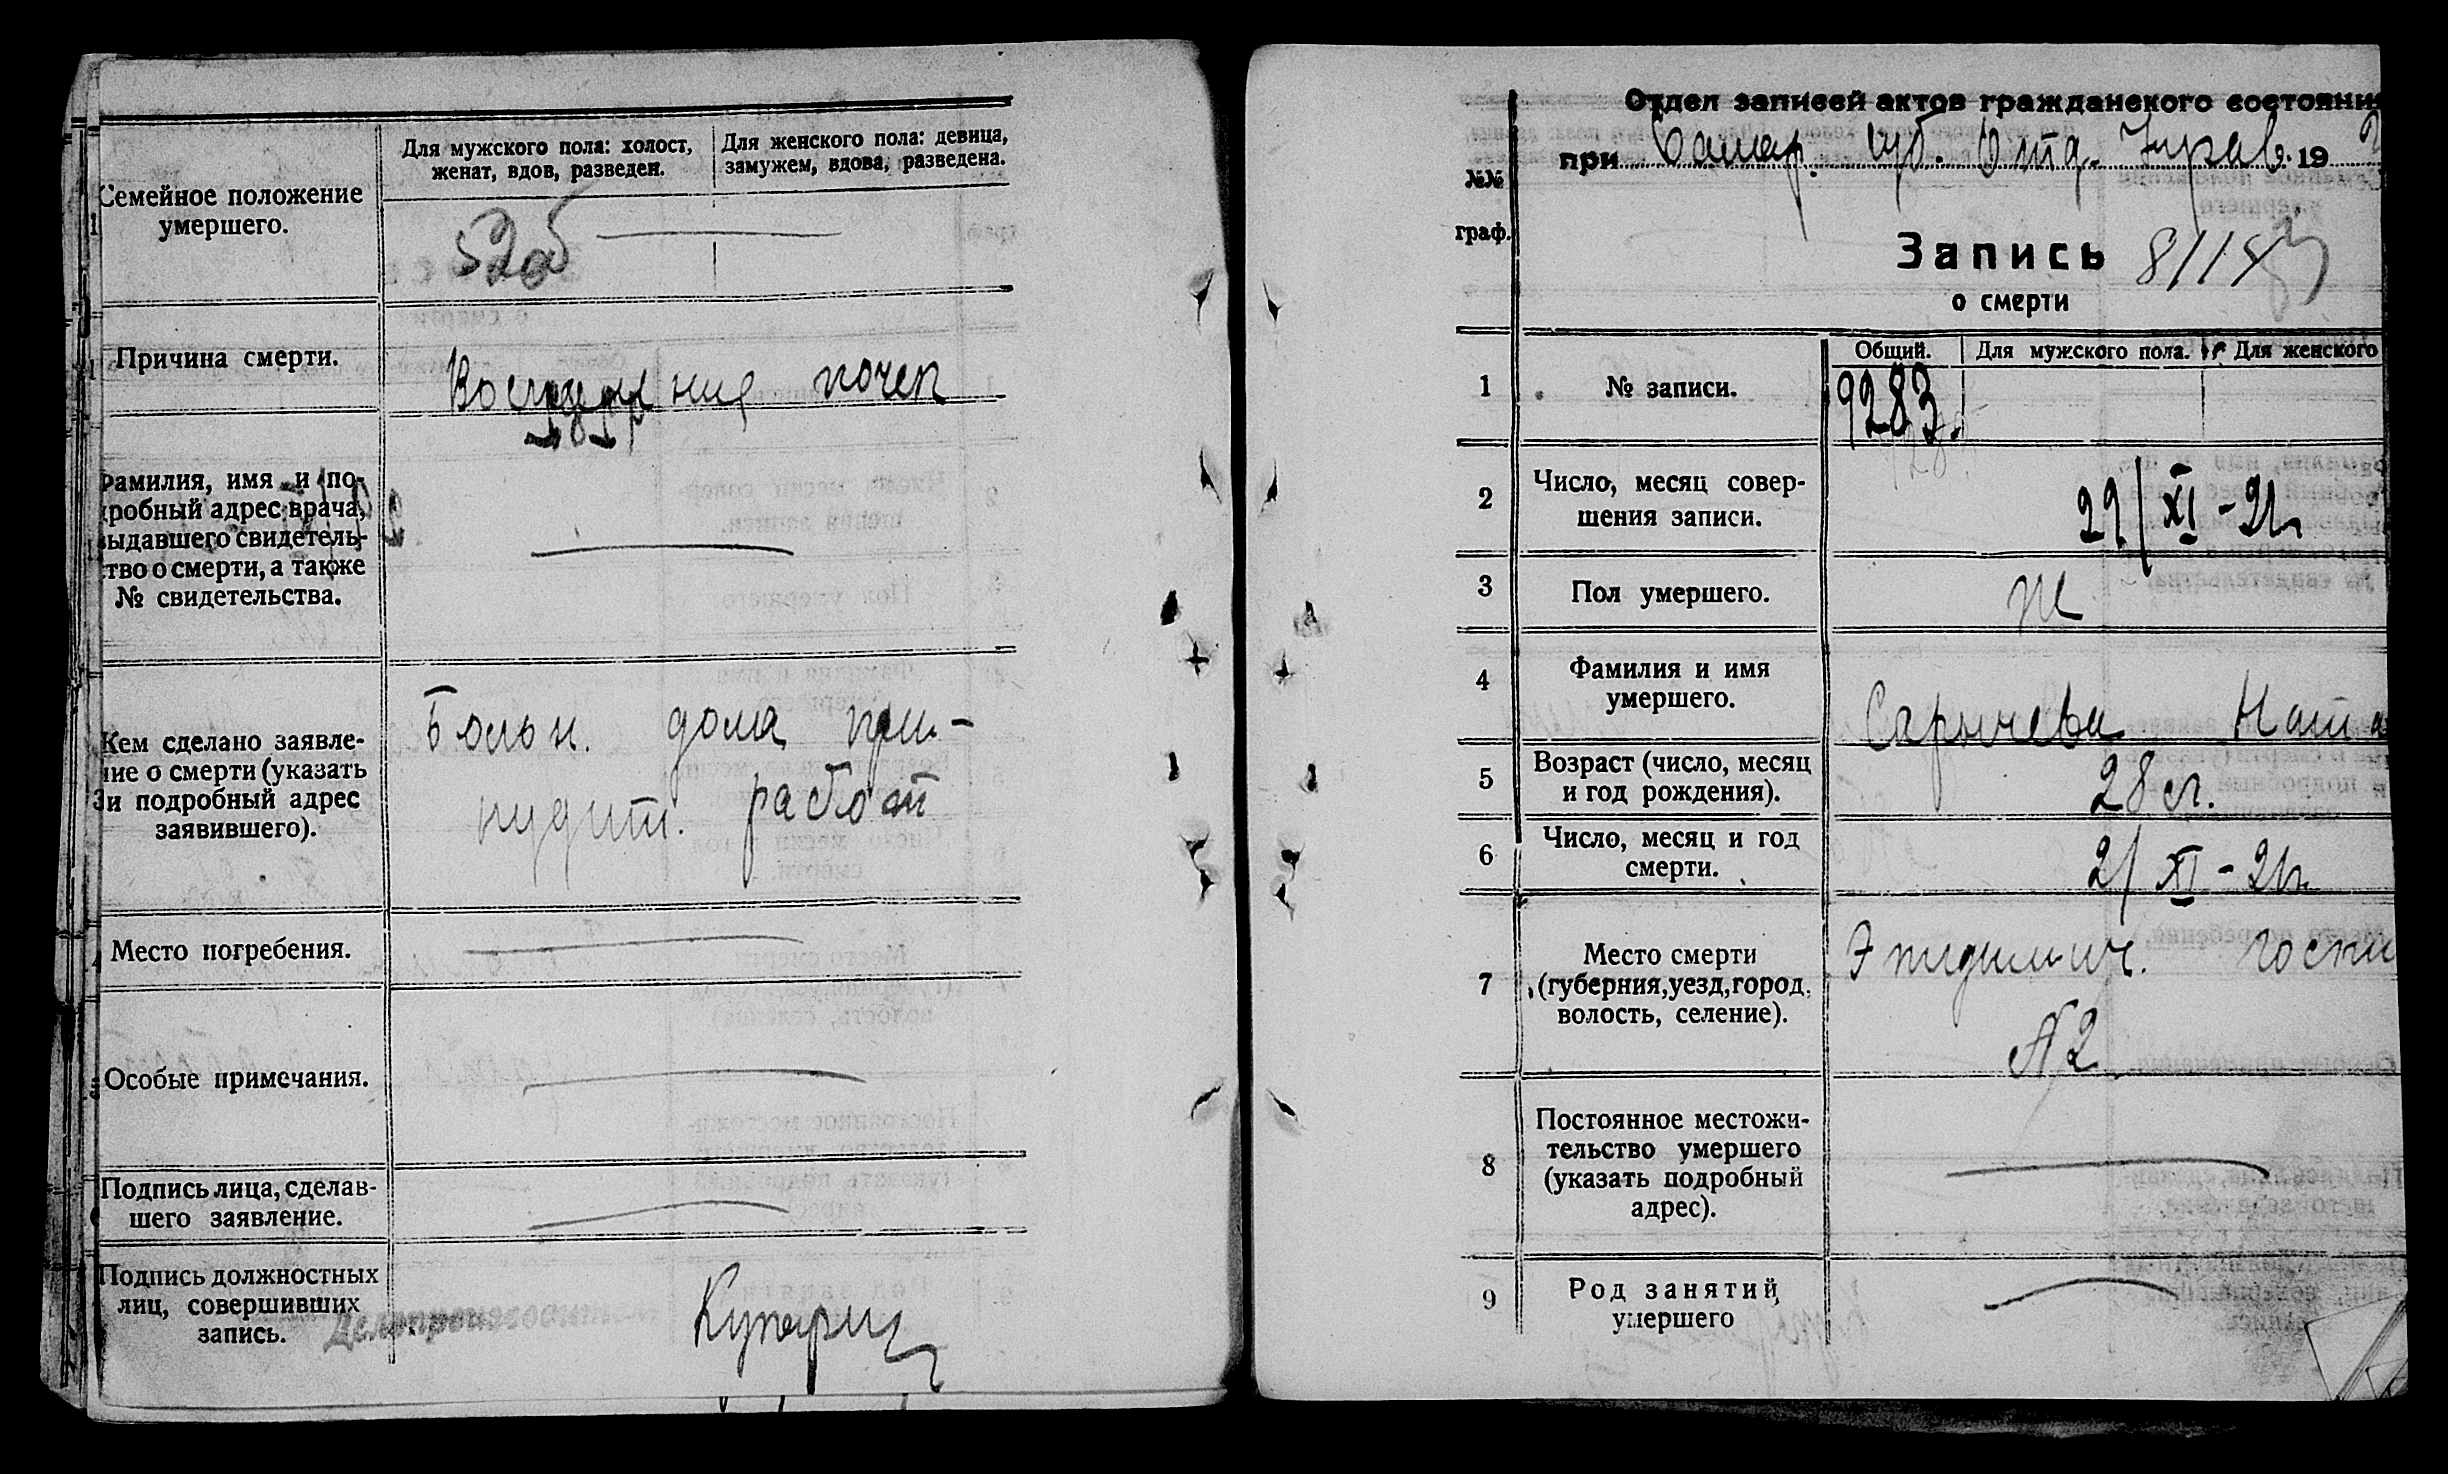 Семейное положение
умершего.
Для мужского пола: холост,
женат, вдов, разведен.
Для женского пола: девица,
замужем, вдова, разведена.
Причина смерти.
почек
Фамилия, имя и по-
дробный адрес врача,
выдавшего свидетель-
тво о смерти, а также
№ свидетельства.
Кем сделано заявле-
ние о смерти (указать
и подробный адрес
заявившего).
Больн. дома при-
нудит. работ
Место погребения.
Особые примечания.
Подпись лица, сделав-
шего заявление.
Подпись должностных
лиц, совершивших
запись.
Делопроизводитель
Отдел записей актов гражданского состояни
при Самар. Губ. Отд. Управ. 19 2
№№
граф.
Запись
о смерти
1
№ записи.
Общий.
Для мужского пола.
Для женского
9283
2
Число, месяц совер-
шения записи.
29/XI-21г
3
Пол умершего.
Ж
4
Фамилия и имя
умершего.
Сарычева Ната
5
Возраст (число, месяц
и год рождения).
28 л.
6
Число, месяц и год
смерти.
21/XI-21г.
7
Место смерти
(губерния, уезд, город,
волость, селение).
Эпидимич. госпи
№2
8
Постоянное местожи-
тельство умершего
(указать подробный
адрес).
9
Род занятий
умершего